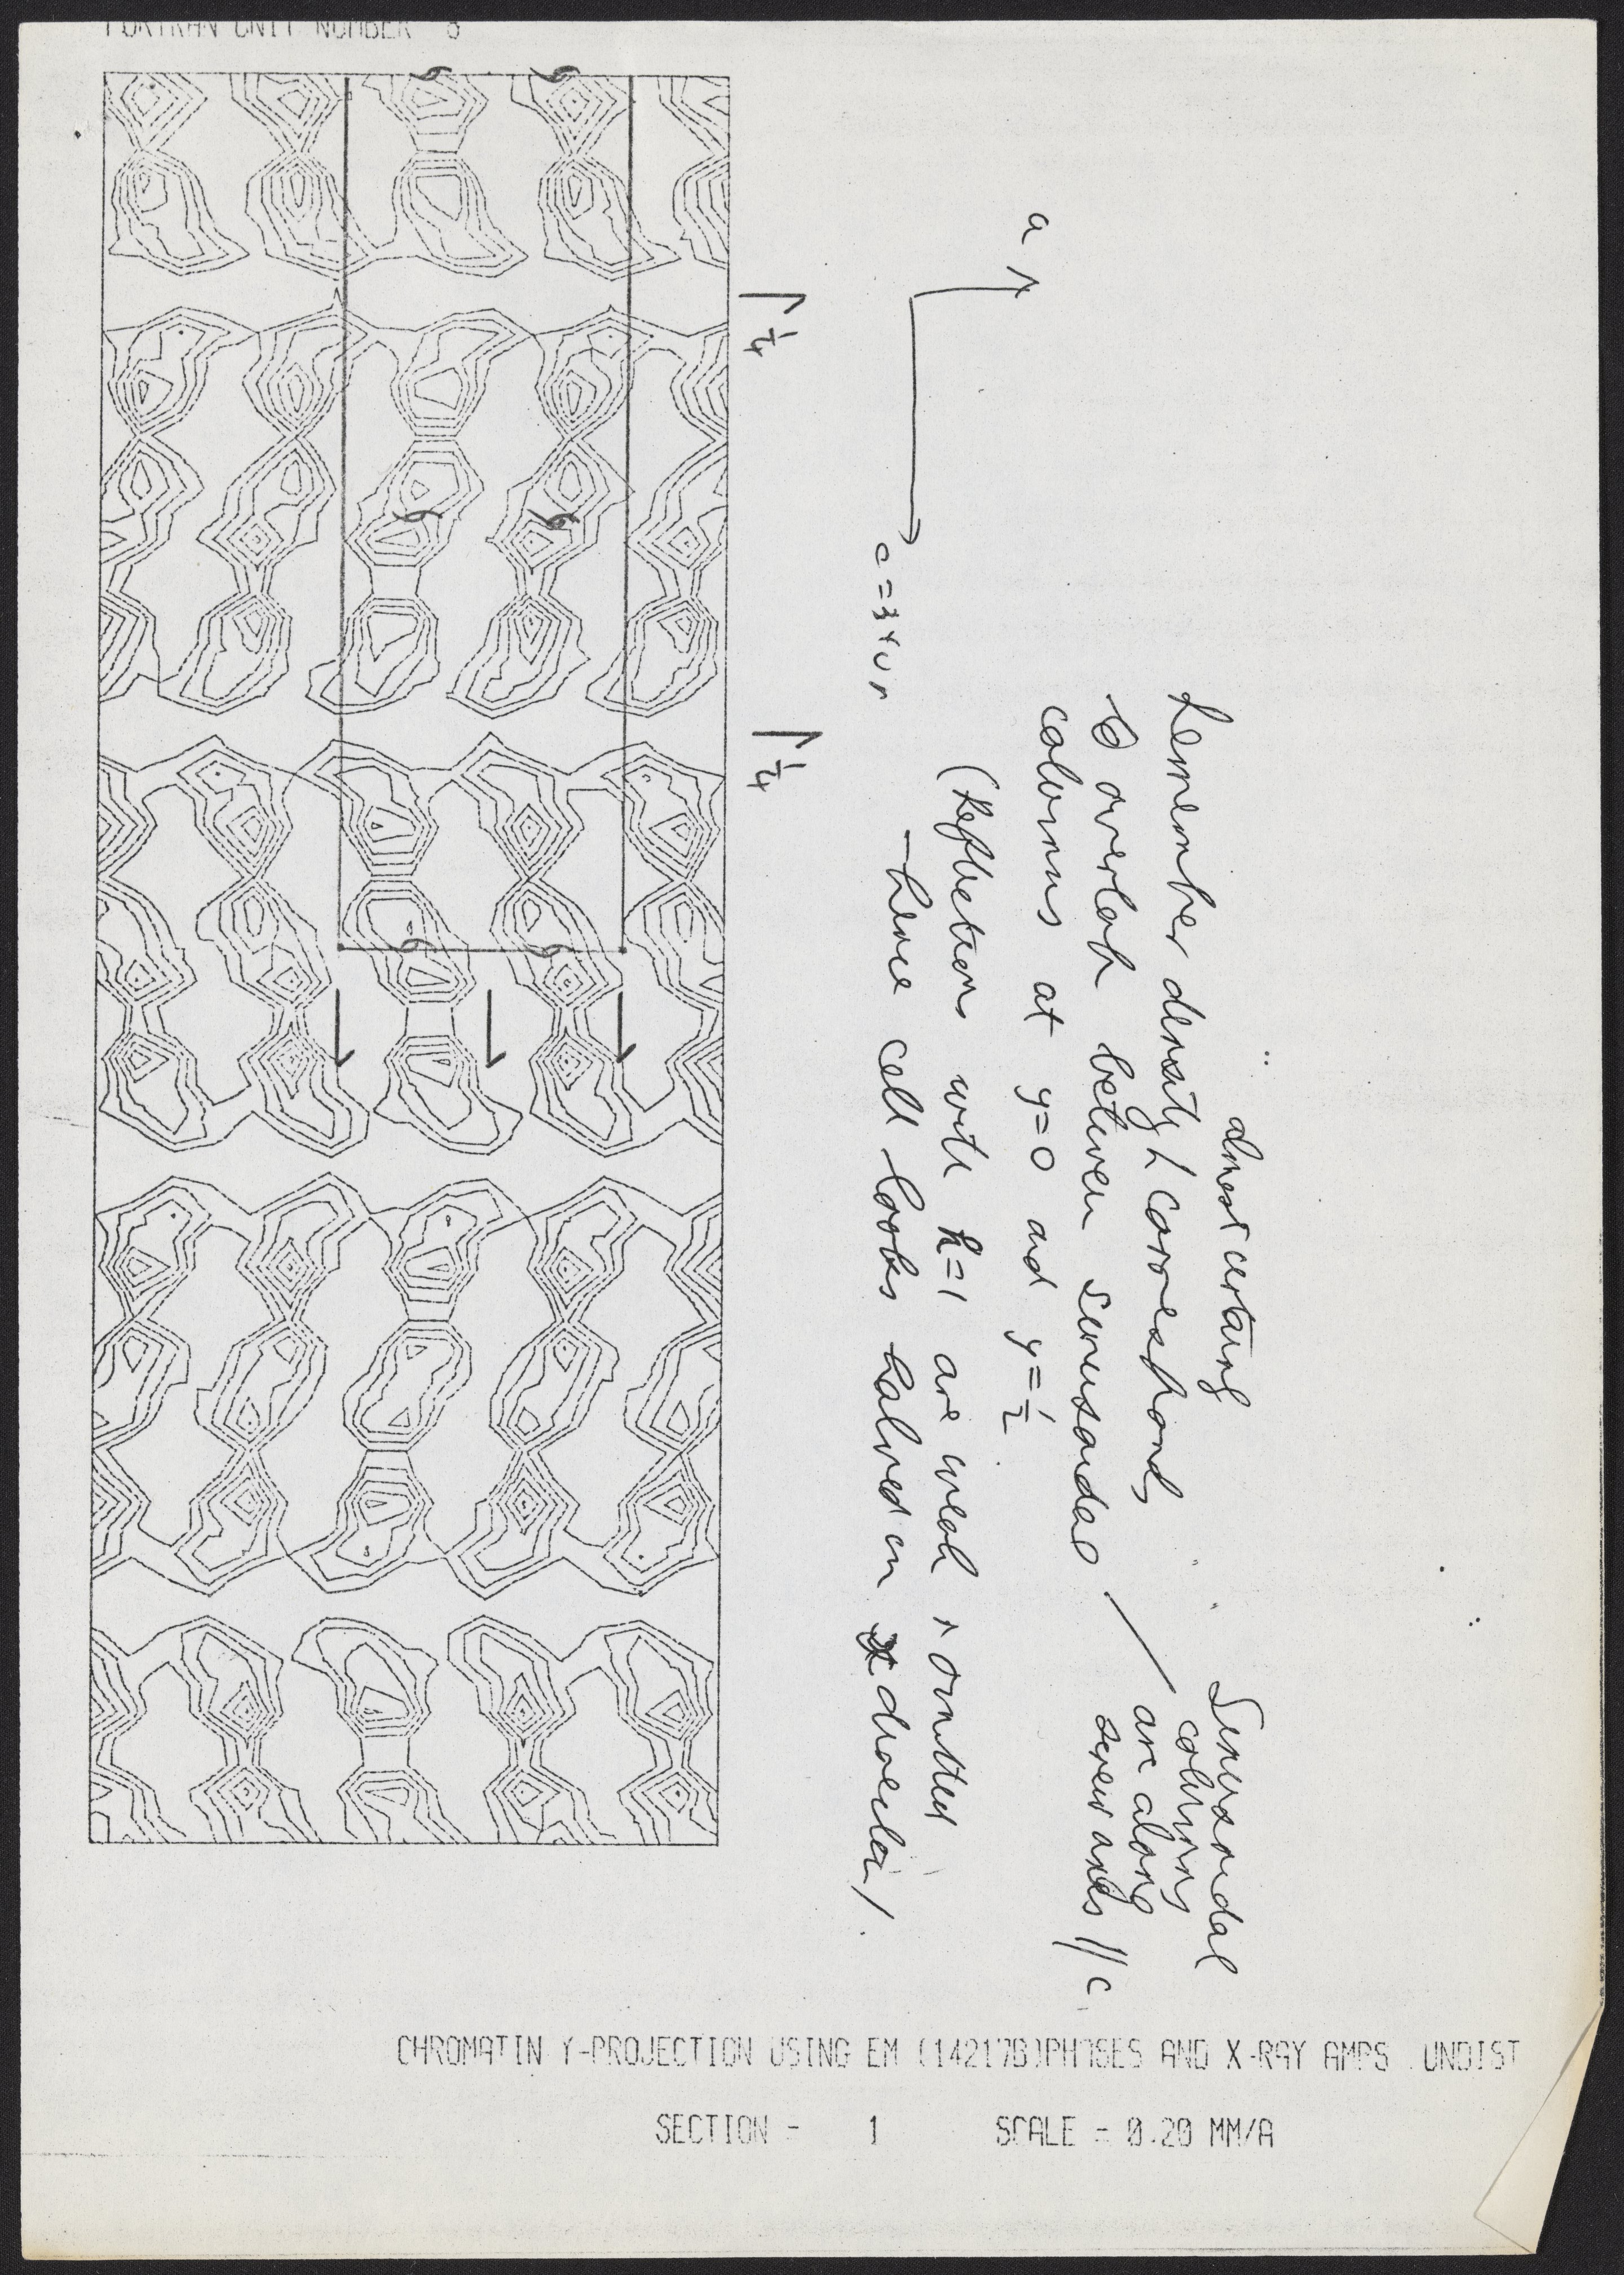 FORTRAN UNIT NUMBER 8
¼
¼
a
c = 340
almost certainly
Remember density ⁁ corresponds
to overlap between sinusoidal
columns at y=0 and y=½
(Reflections with h=1 are weak & omitted
- hence cell looks halved in x direction).
Sinusoidal
columns
are along
screw axes //c
CHROMATIN Y-PROJECTION USING EM (14217B)PHASES AND X-RAY AMPS UNDIST
SECTION - 1 SCALE = 0.20 MM/A